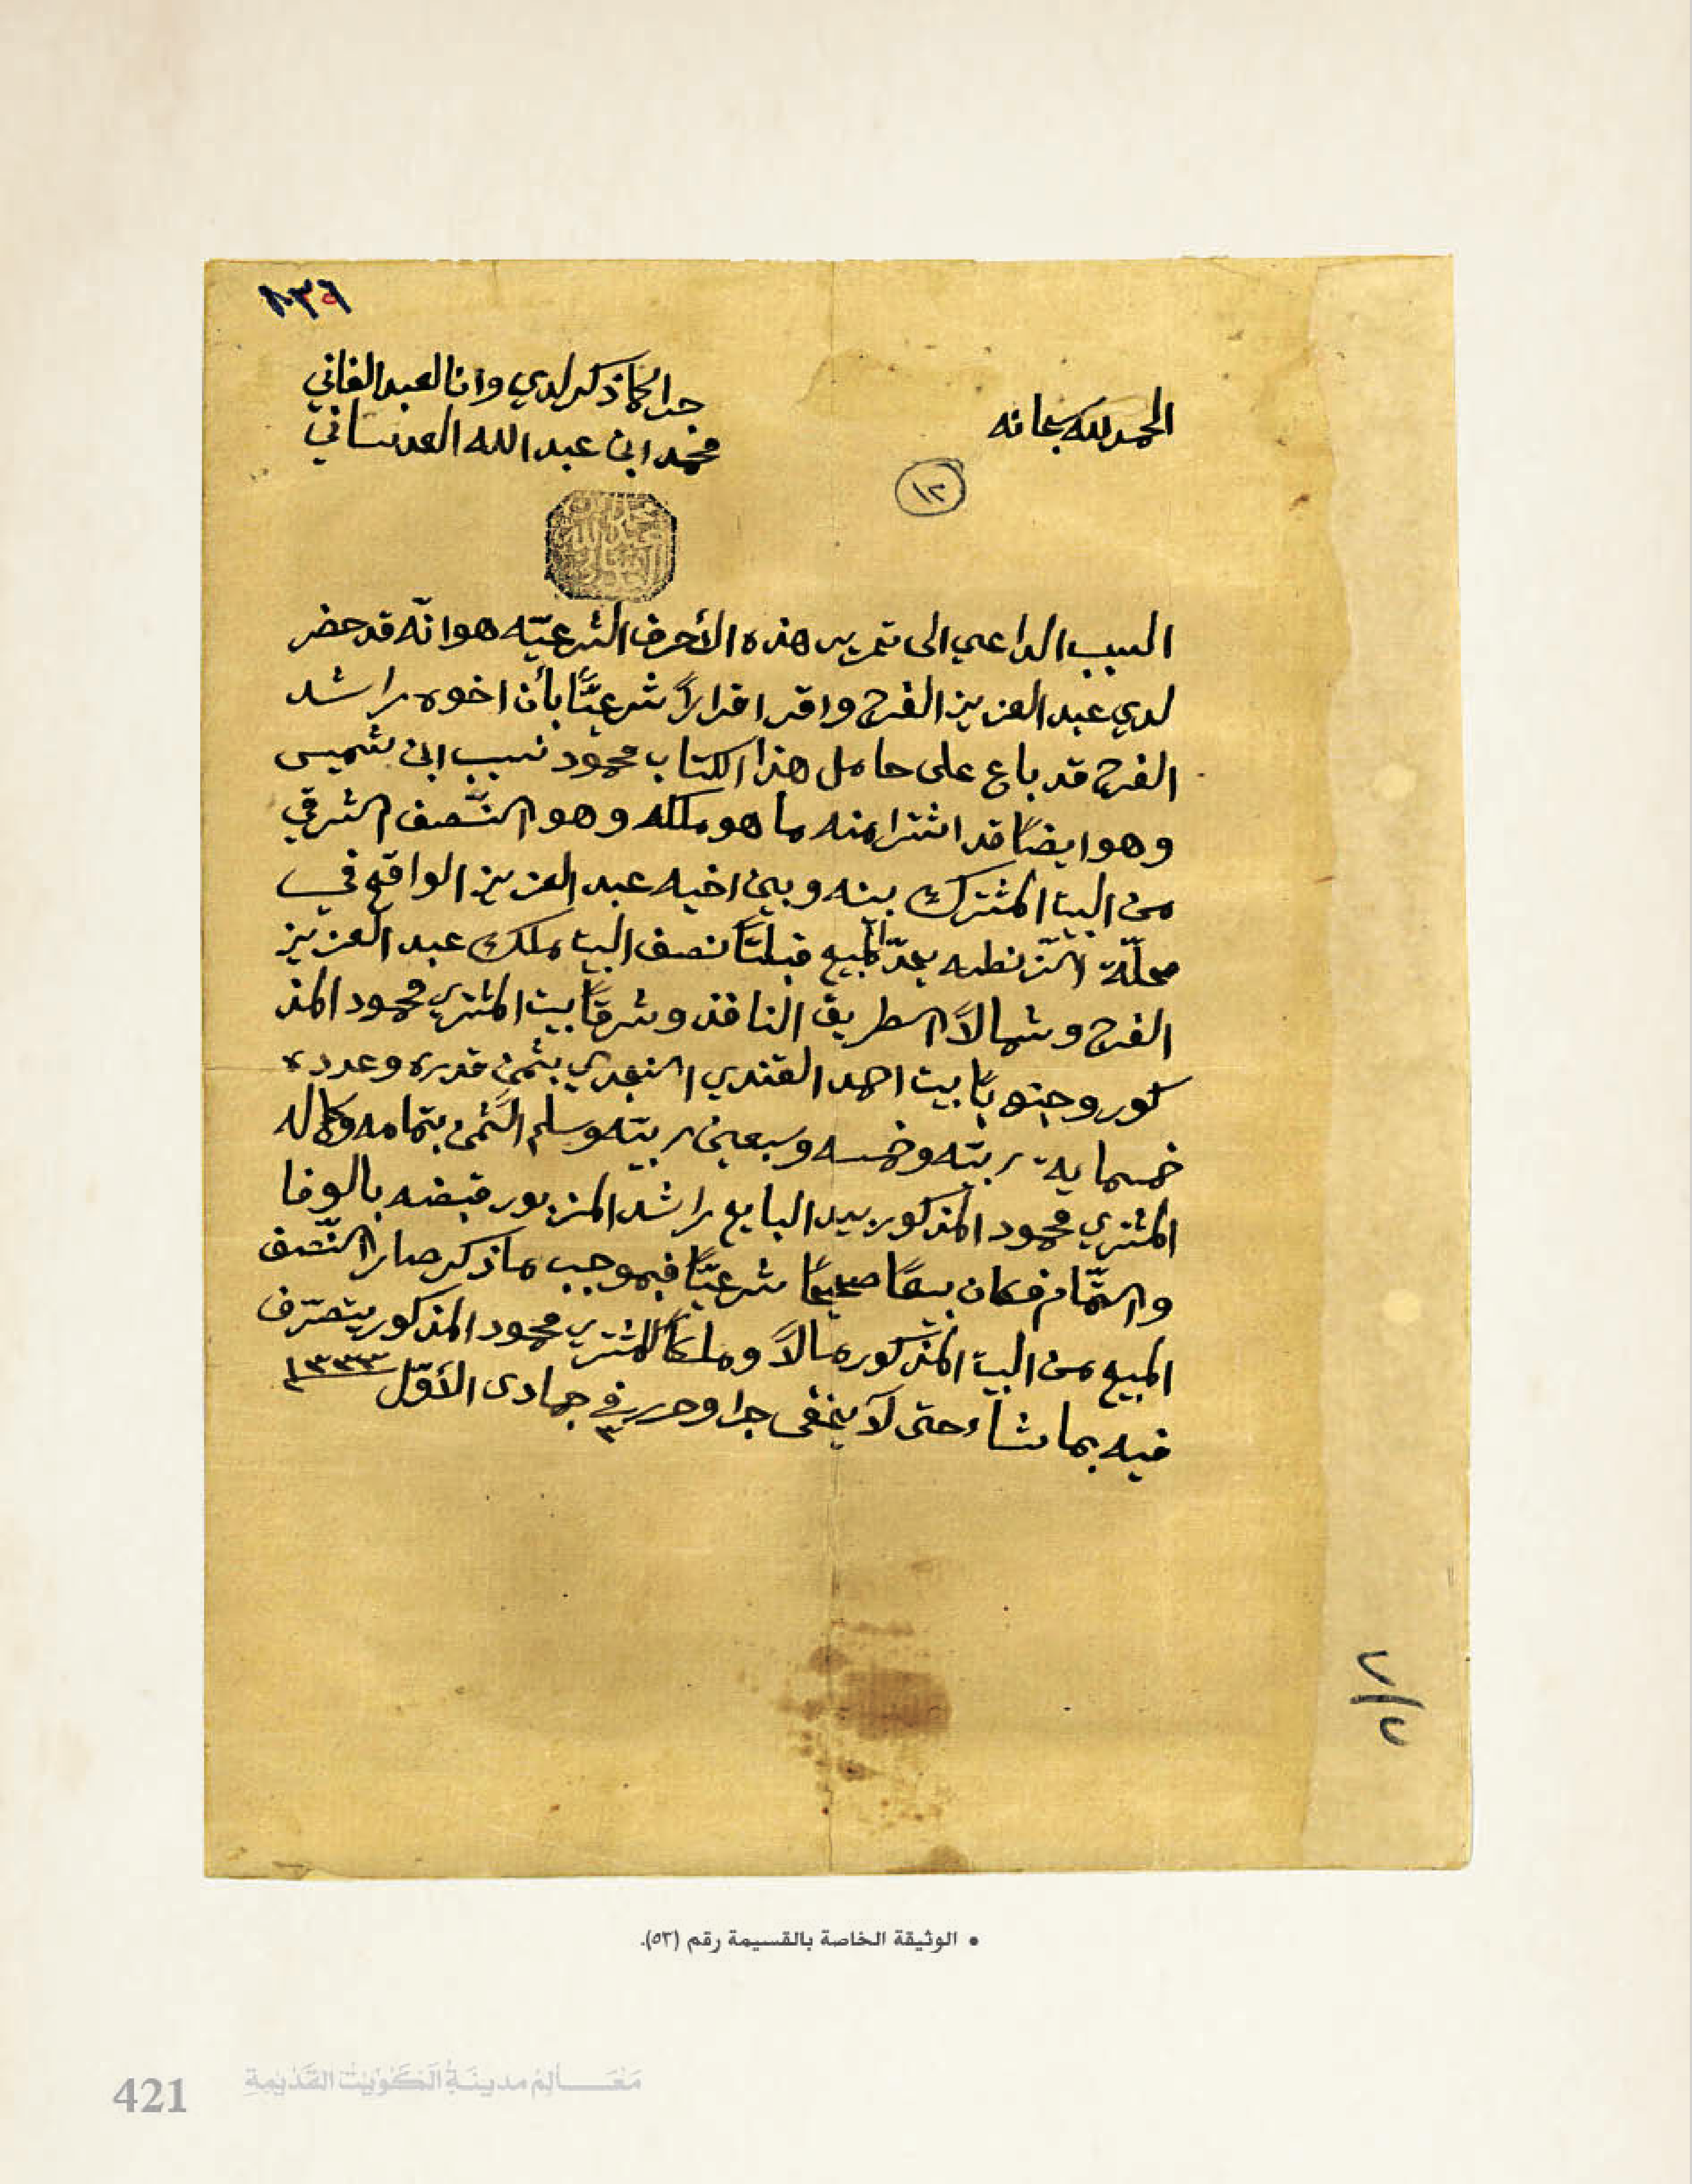 ٨٣٦
الحمد لله سبحانه
جرا كما ذكر لدي وانا العبد الفاني
محمد ابن عبد الله العدساني
١٢
السبب الداعي الى تحرير هذه الأحرف الشرعيّه هو انّه قد حضر
لدي عبد العزيز الفرج واقر اقراراً شرعيّاً بأن اخوه راشد
الفرج قد باع على حامل هذا الكتاب محمود نسيب ابن شميس
وهو ايضاً قد اشترا منه ما هو ملكه وهو النّصف الشرقي
من البيت المشترك بينه وبين اخيه عبد العزيز الواقع في
محلّة الزنطه يحدّ المبيع قبلتاً نصف البيت ملك عبد العزيز
الفرج وشمالاً الطريق النافذ وشرقاً بيت المشتري محمود المذ
كور وجنوباً بيت احمد الفندي النجدي بثمن قدره وعدده
خمسماية ربيّه وخمسه وسبعين ربيّه وسلم الثمن بتمامه وكماله
المشتري محمود المذكور بيد البايع راشد المزبور قبضه بالوفا
والتّمام فكان بيعاً صحيحاً شرعيّاً فبموجب ما ذكر صار النّصف
المبيع من البيت المذكور مالاً وملكاً للمشتري محمود المذكور يتصرّف
فيه بما شاء حتى لا يخفى جرا وحرر في ٣ جمادى الأوّل ١٣٣٣
٢/٧
• الوثيقة الخاصة بالقسيمة رقم (٥٣).
معالم مدينة الكويت القديمة
421